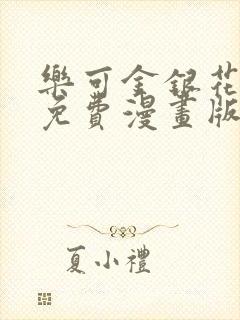 樂可金銀花
免費漫畫版
夏小禮